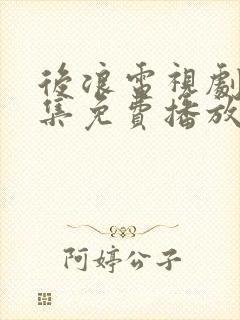 後浪電視劇
集免費播放
阿婷公子